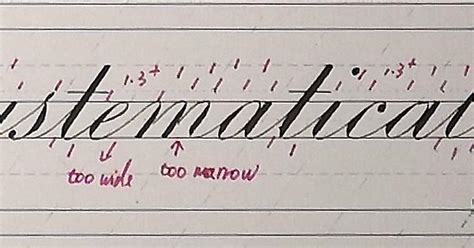 1.3+ 1.3+
stematical
too wide too narrow